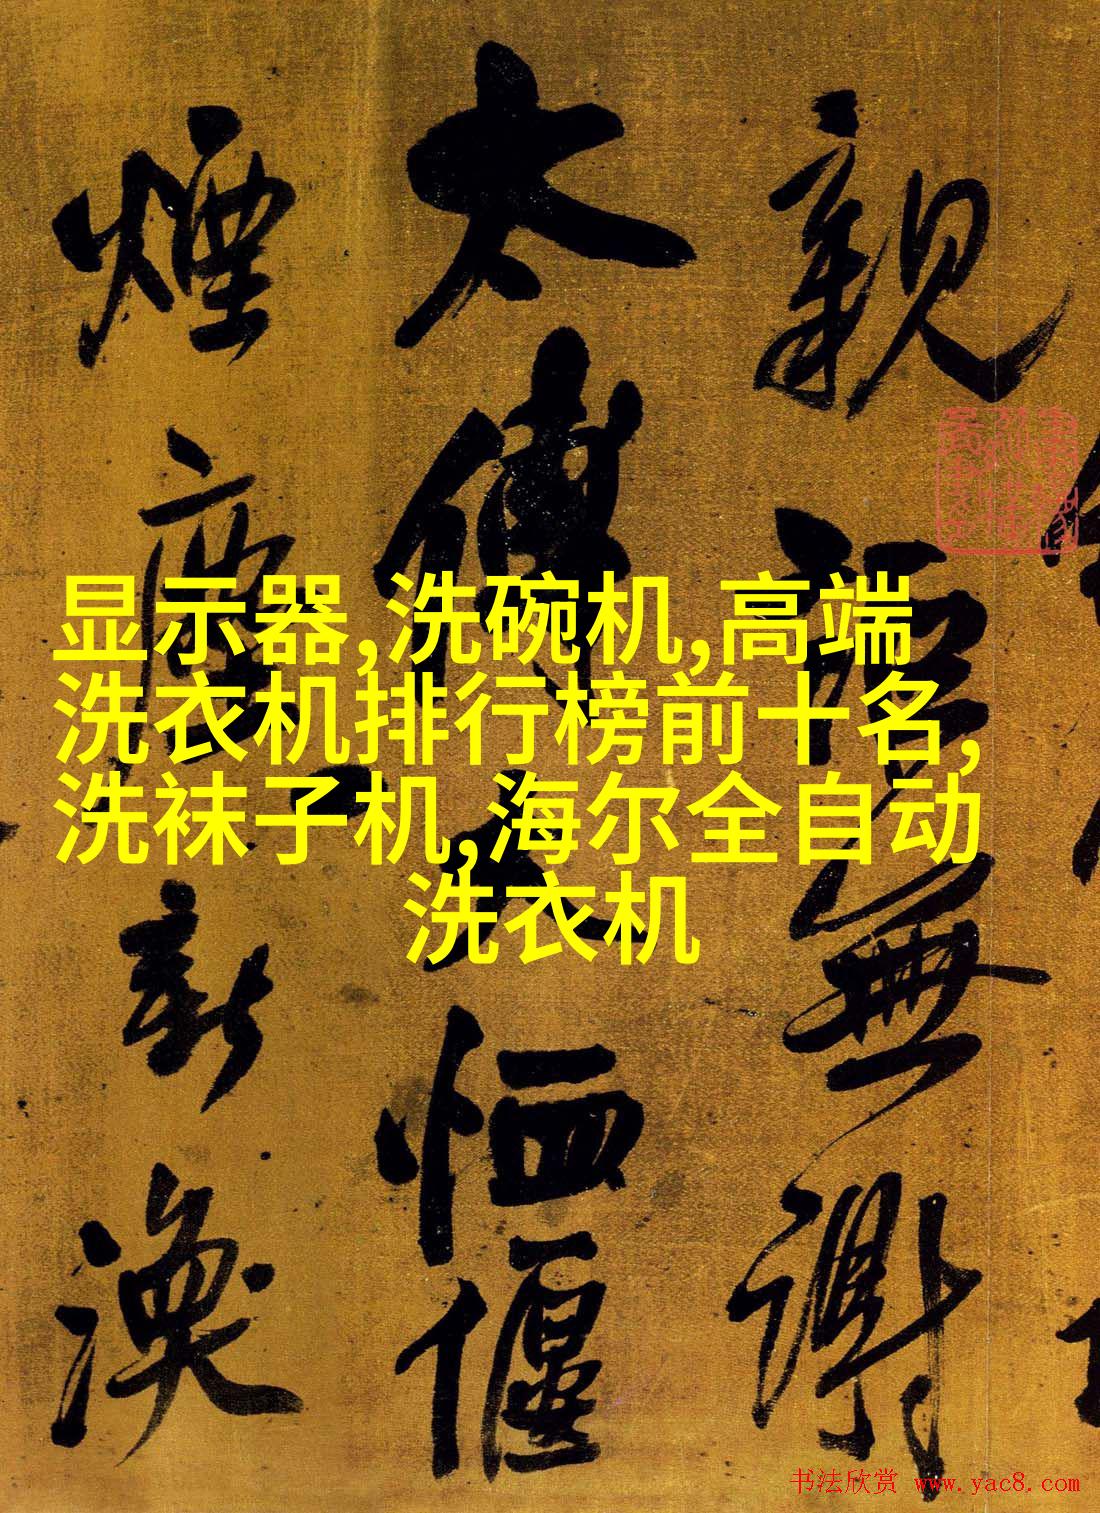 显示器,洗碗机,高端
洗衣机排行榜前十名,
洗袜子机,海尔全自动
洗衣机
親
無謝
太傅
恤偃
煙塵新渙
书法欣赏 www.yac8.com